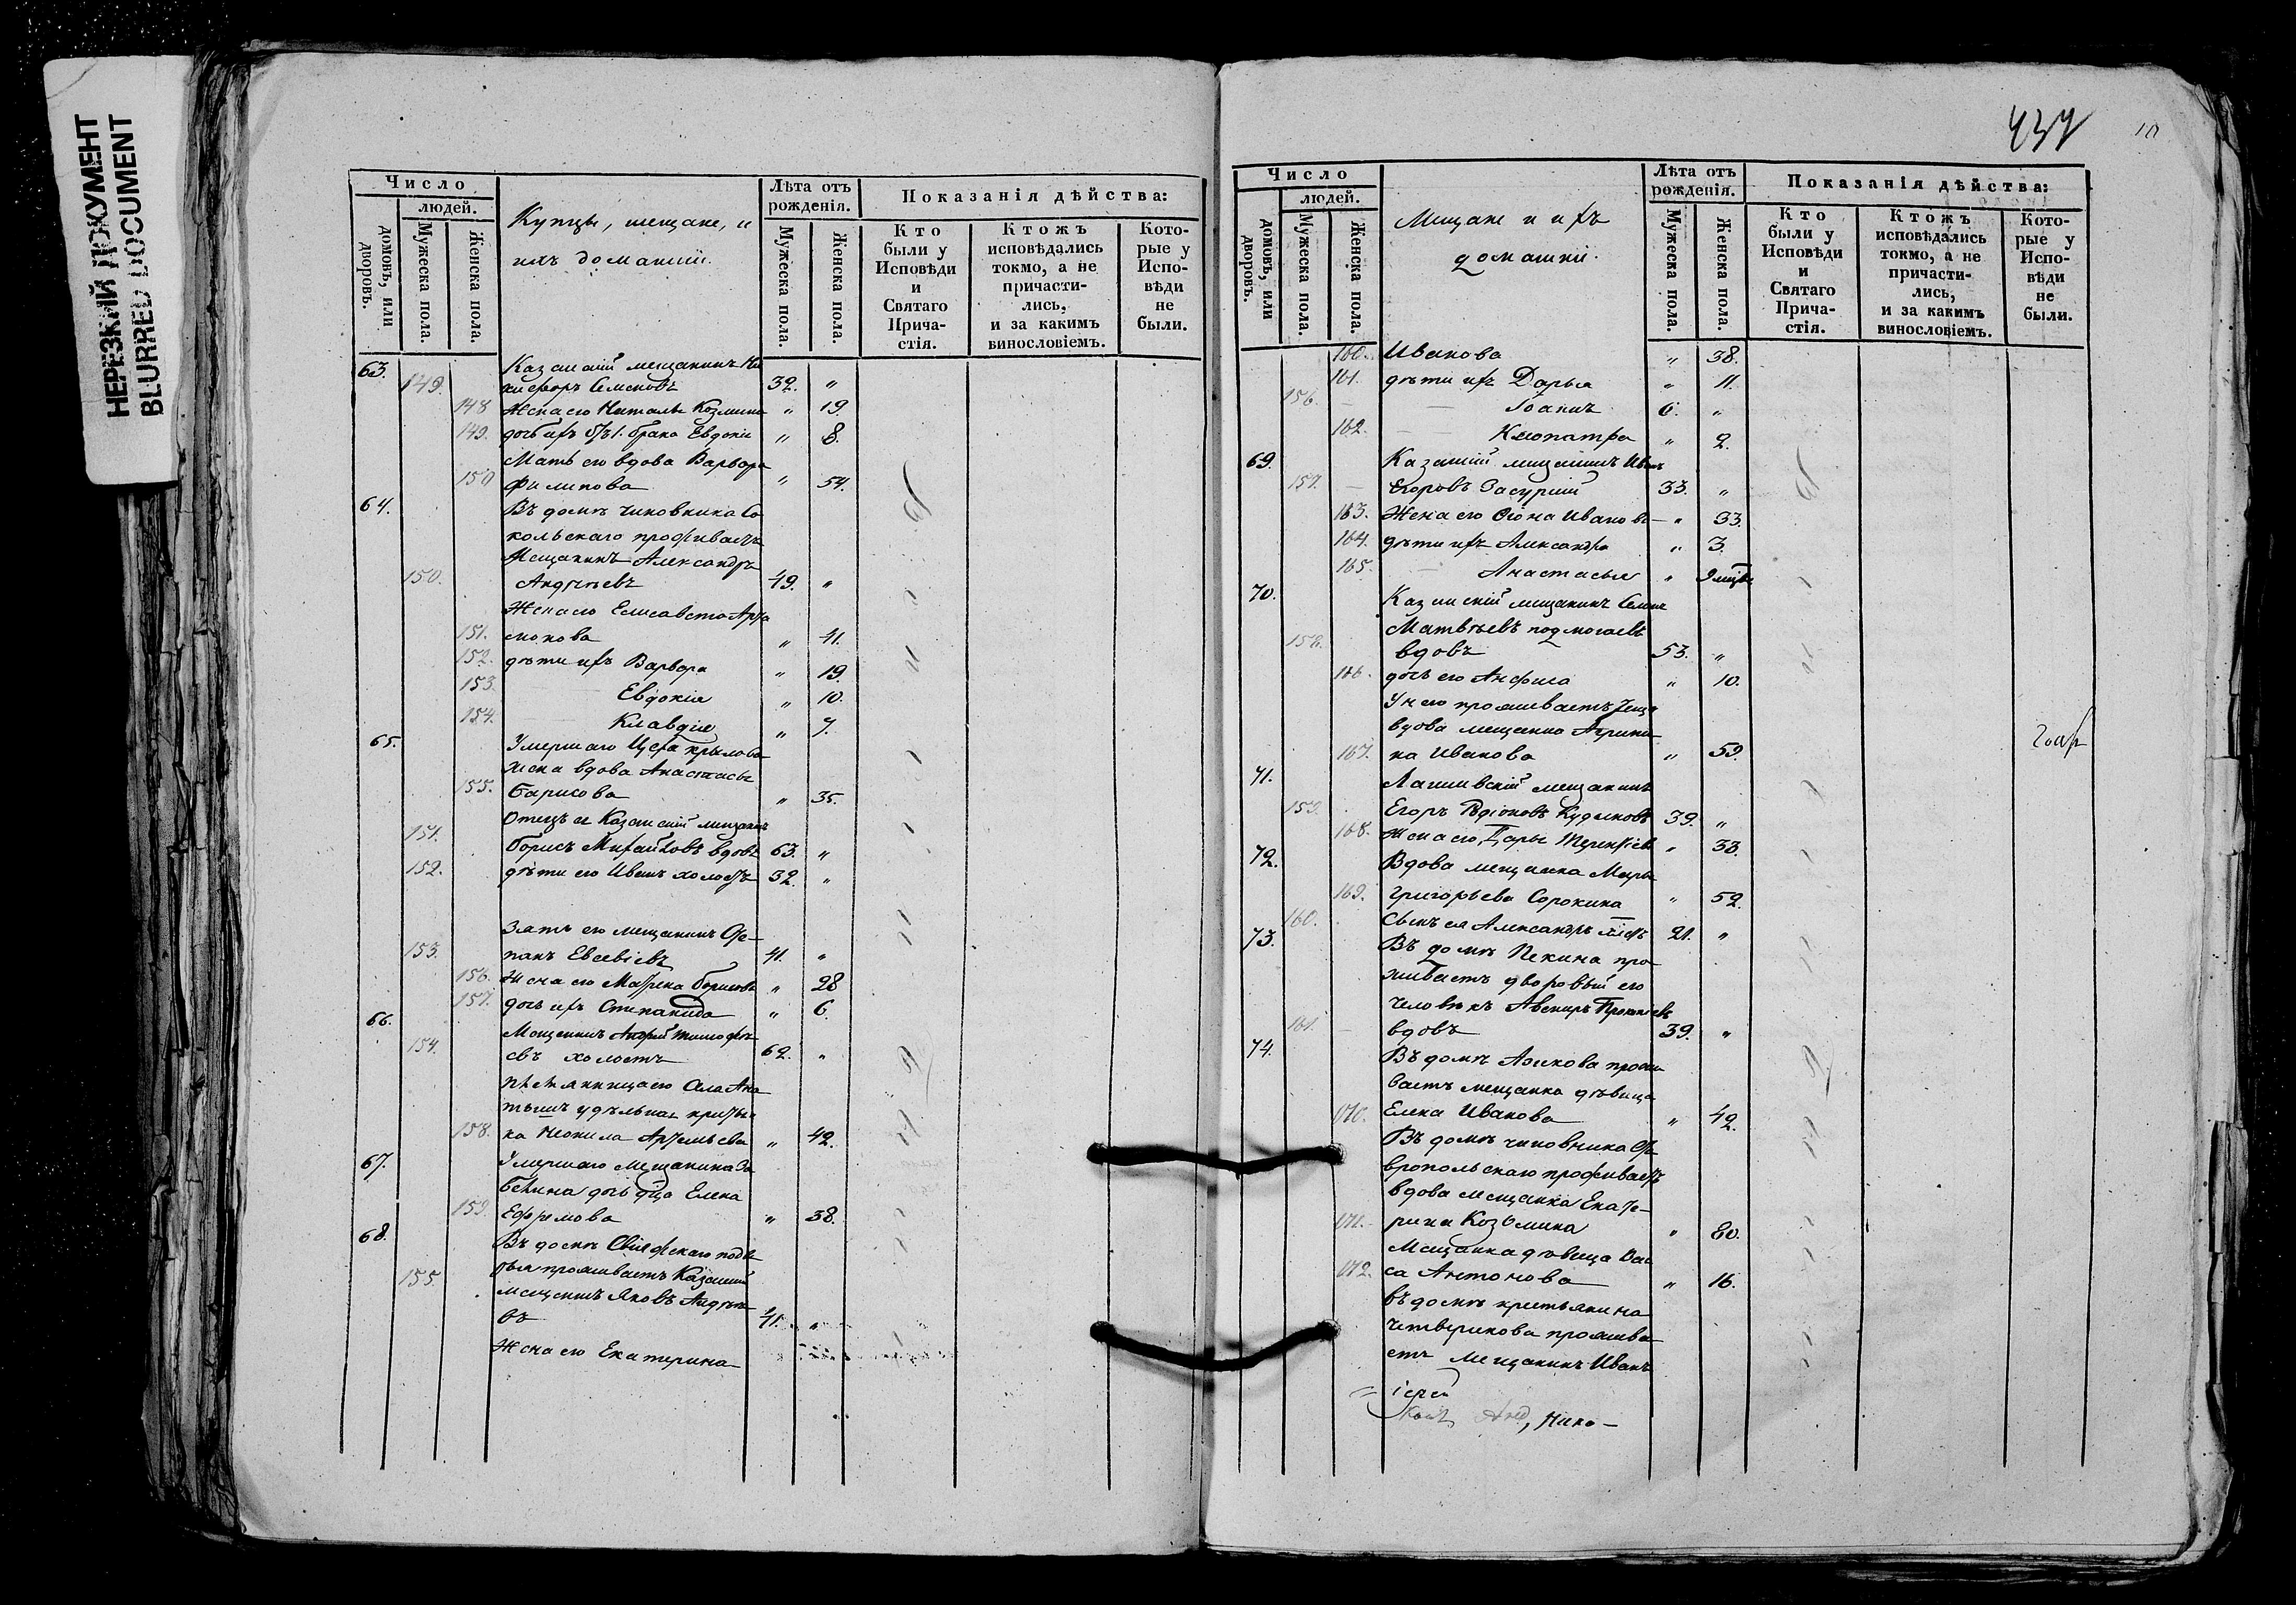 НЕРЕЗКИЙ ДОКУМЕНТ
BLURRED DOCUMENT
Число
людей.
домовъ, или дворовъ.
Мужеска пола.
Женска пола.
Купцы, мещане, и
ихъ домашніи.
Лѣта отъ рожденія.
Мужеска пола.
Женска пола.
Показанія дѣйства:
Кто были у Исповѣди и Святаго Прича- стія.
Ктожъ исповѣдались токмо, а не причасти- лись, и за какимъ винословіемъ.
Кото- рые у Испо- вѣди не были.
63. Казанскій мещанинъ Ни
149. кифоръ Семеновъ 32. "
148 Жена его Наталья Козмина " 19.
149. дочь ихъ 1. брака Евдокія " 8.
Мать его вдова Варвара
150 Филипова " 54.
64. Въ домѣ чиновника Со
кольскаго проживаетъ
Мещанинъ Александръ
150. Андреевъ 49. "
Жена его Елисавета Арта
151. монова " 41.
152. дѣти ихъ Варвара " 19.
153. Евдокія " 10.
154. Клавдія " 7.
65. Умершаго Крылова
жена вдова Анастасья
155. Барисова " 35.
Отецъ ея Казанскій мещанинъ
151. Борисъ Михайловъ вдовъ 63. "
152. дѣти его Иванъ холостъ 32. "
Зять его мещанинъ Сте-
153. панъ Евсевіевъ 41. "
156. Жена его Матрена Борисова " 28
157. дочь ихъ Степанида " 6.
66. Мещанинъ Андрей Тимофѣ
154. евъ холостъ 62. "
удѣльная крестьян
158. ка Неонила Артемьева " 42.
67. Умершаго Мещанина За
бенина дочь дѣца Елена
159. Ефремова " 38.
68. Въ домѣ Свіяжскаго подво
рья проживаетъ Казанскій
155 мещанинъ Яковъ Андрее
въ 41. "
Жена его Екатерина
437
10
Число
людей.
домовъ, или дворовъ.
Мужеска пола.
Женска пола.
Мещане и ихъ
домашніи.
Лѣта отъ рожденія.
Мужеска пола.
Женска пола.
Показанія дѣйства:
Кто были у Исповѣди и Святаго Прича- стія.
Ктожъ исповѣдались токмо, а не причасти- лись, и за какимъ винословіемъ.
Кото- рые у Испо- вѣди не были.
160. Иванова " 38.
161. дѣти ихъ Дарья " 11.
156. Іоаннъ 6. "
162. Клеопатра " 2.
69. Казанскій мещанинъ Иванъ
157. Егоровъ Засурскій 33. "
163. Жена его Иванова " 33.
164. дѣти ихъ Александра " 3.
165. Анастасья " 9 мцвъ
70. Казанскій мещанинъ Семенъ
Матвѣевъ Подмогаевъ
158. вдовъ 53. "
166. дочь его Анфиса " 10.
У него проживаетъ теща
вдова мещанка Агрипи
167. на Иванова " 59.
71. Лаишевскій мещанинъ
159. Егоръ Родіоновъ 39. "
168. Жена его Дарья Терентіева " 33.
72. Вдова мещанка Марья
169. Григорьева Сорокина " 52.
160. Сынъ ея Александръ 21. "
73. Въ домѣ Пекина про
живаетъ дворовый его
человѣкъ Авениръ
161. вдовъ 39. "
74. Въ домѣ прожи
ваетъ мещанка дѣвица
170. Елена Иванова " 42.
Въ домѣ чиновника Ста
вропольскаго проживаетъ
вдова мещанка Екате-
171. рина Козьмина " 80.
Мещанка дѣвица Вас
172. са Антонова " 16.
въ домѣ крестьянина
Четверикова прожива
етъ мещанинъ Иванъ
іерей
Нико-